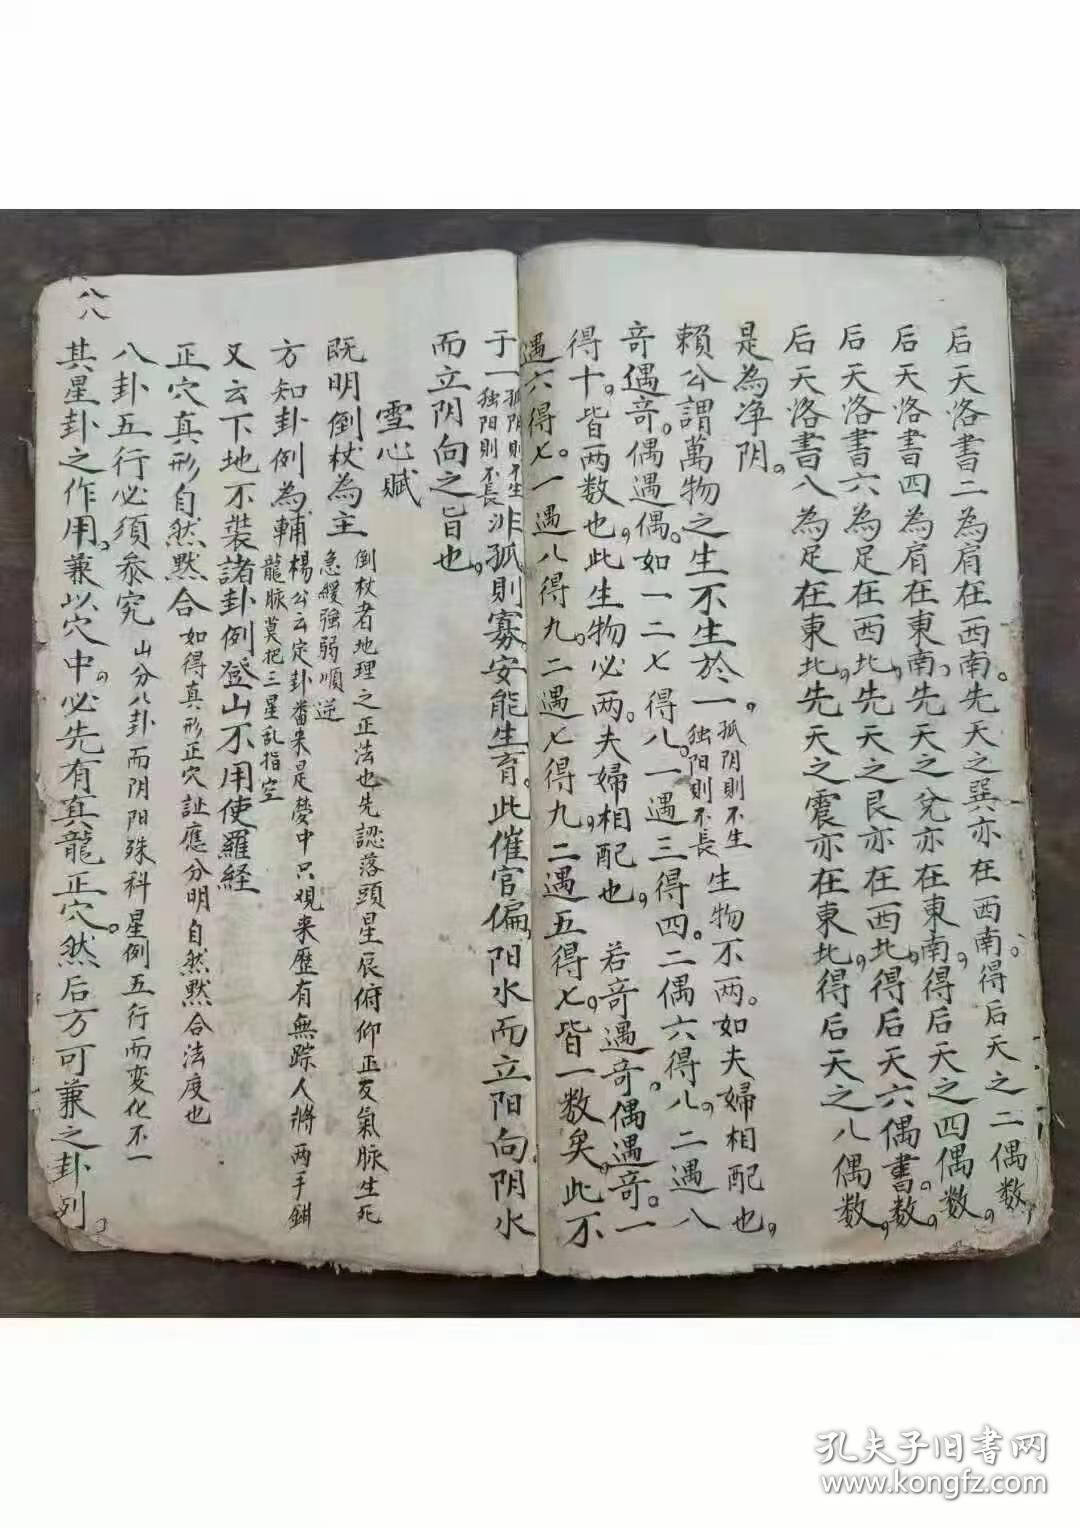 后天洛書二為肩在西南。先天之巽亦在西南。得后天之二偶數,
后天洛書四為肩在東南,先天之兌亦在東南,得后天之四偶數,
后天洛書六為足在西北,先天之艮亦在西北,得后天六偶書。數,
后天洛書八為足在東北,先天之震亦在東北,得后天之八偶數,
是為净阴。
賴公謂萬物之生不生於一,孤阴則不生独阳則不長生物不两。如夫婦相配也,
竒遇竒。偶遇偶。如一二七得八。一遇三得四。二偶六得八。二遇八
得十。皆两数也此生物必两。夫婦相配也,若竒遇竒。偶遇竒。一
遇六得七。一遇八得九。二遇七得九,二遇五得七。皆一数矣,此不
于一孤阴則不生独阳則不長非孤則寡。安能生育。此催官偏,阳水而立阳向,阴水
而立阴向之旨也,
雪心賦
既明倒杖為主倒杖者地理之正法也先認落頭星辰俯仰正友氣脉生死急緩強弱順逆
方知卦例為輔楊公云定卦番来是夢中只观来歷有無踪人將两手鉗龍脉莫把三星乱指空
又云下地不裝諸卦例登山不用使羅経
正穴真形自然黙合如得真形正穴証應分明自然黙合法度也
八卦五行必須叅究山分八卦而阴阳殊科星例五行而変化不一
其星卦之作用,兼以穴中,必先有真龍正穴。然后方可兼之卦列。
八八
孔夫子旧書网
www.kongfz.com